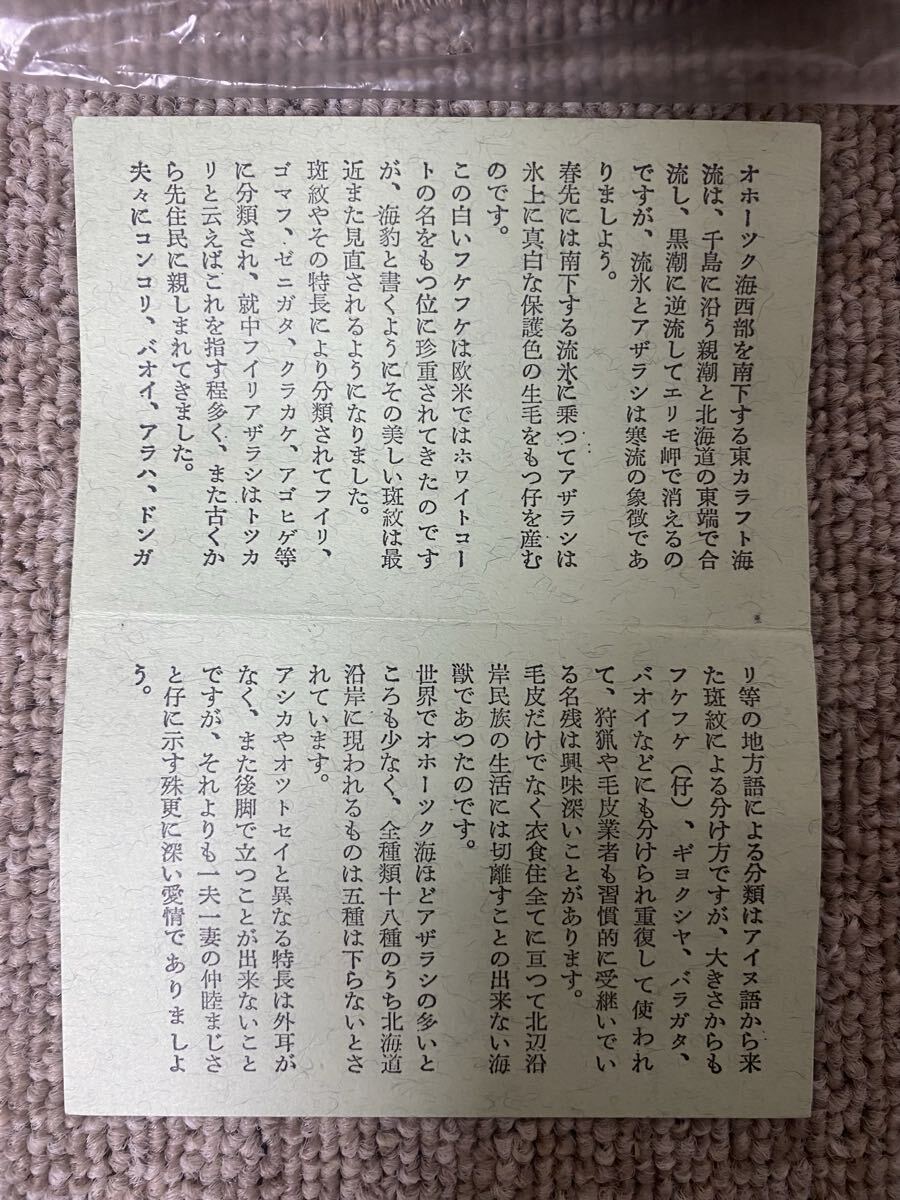 オホーツク海西部を南下する東カラフト海
流は、千島に沿う親潮と北海道の東端で合
流し、黒潮に逆流してエリモ岬で消えるの
ですが、流氷とアザラシは寒流の象徴であ
りましよう。
春先には南下する流氷に乗つてアザラシは
氷上に真白な保護色の生毛をもつ仔を産む
のです。
この白いフケフケは欧米ではホワイトコー
トの名をもつ位に珍重されてきたのです
が、海豹と書くようにその美しい斑紋は最
近また見直されるようになりました。
斑紋やその特長により分類されてフイリ、
ゴマフ、ゼニガタ、クラカケ、アゴヒゲ等
に分類され、就中フイリアザラシはトツカ
リと云えばこれを指す程多く、また古くか
ら先住民に親しまれてきました。
夫々にコンコリ、バオイ、アラハ、ドンガ
リ等の地方語による分類はアイヌ語から来
た斑紋による分け方ですが、大きさからも
フケフケ（仔）、ギヨクシヤ、バラガタ、
バオイなどにも分けられ重復して使われ
て、狩猟や毛皮業者も習慣的に受継いでい
る名残は興味深いことがあります。
毛皮だけでなく衣食住全てに亘つて北辺沿
岸民族の生活には切離すことの出来ない海
獣であつたのです。
世界でオホーツク海ほどアザラシの多いと
ころも少なく、全種類十八種のうち北海道
沿岸に現われるものは五種は下らないとさ
れています。
アシカやオツトセイと異なる特長は外耳が
なく、また後脚で立つことが出来ないこと
ですが、それよりも一夫一妻の仲睦まじさ
と仔に示す殊更に深い愛情でありましよ
う。